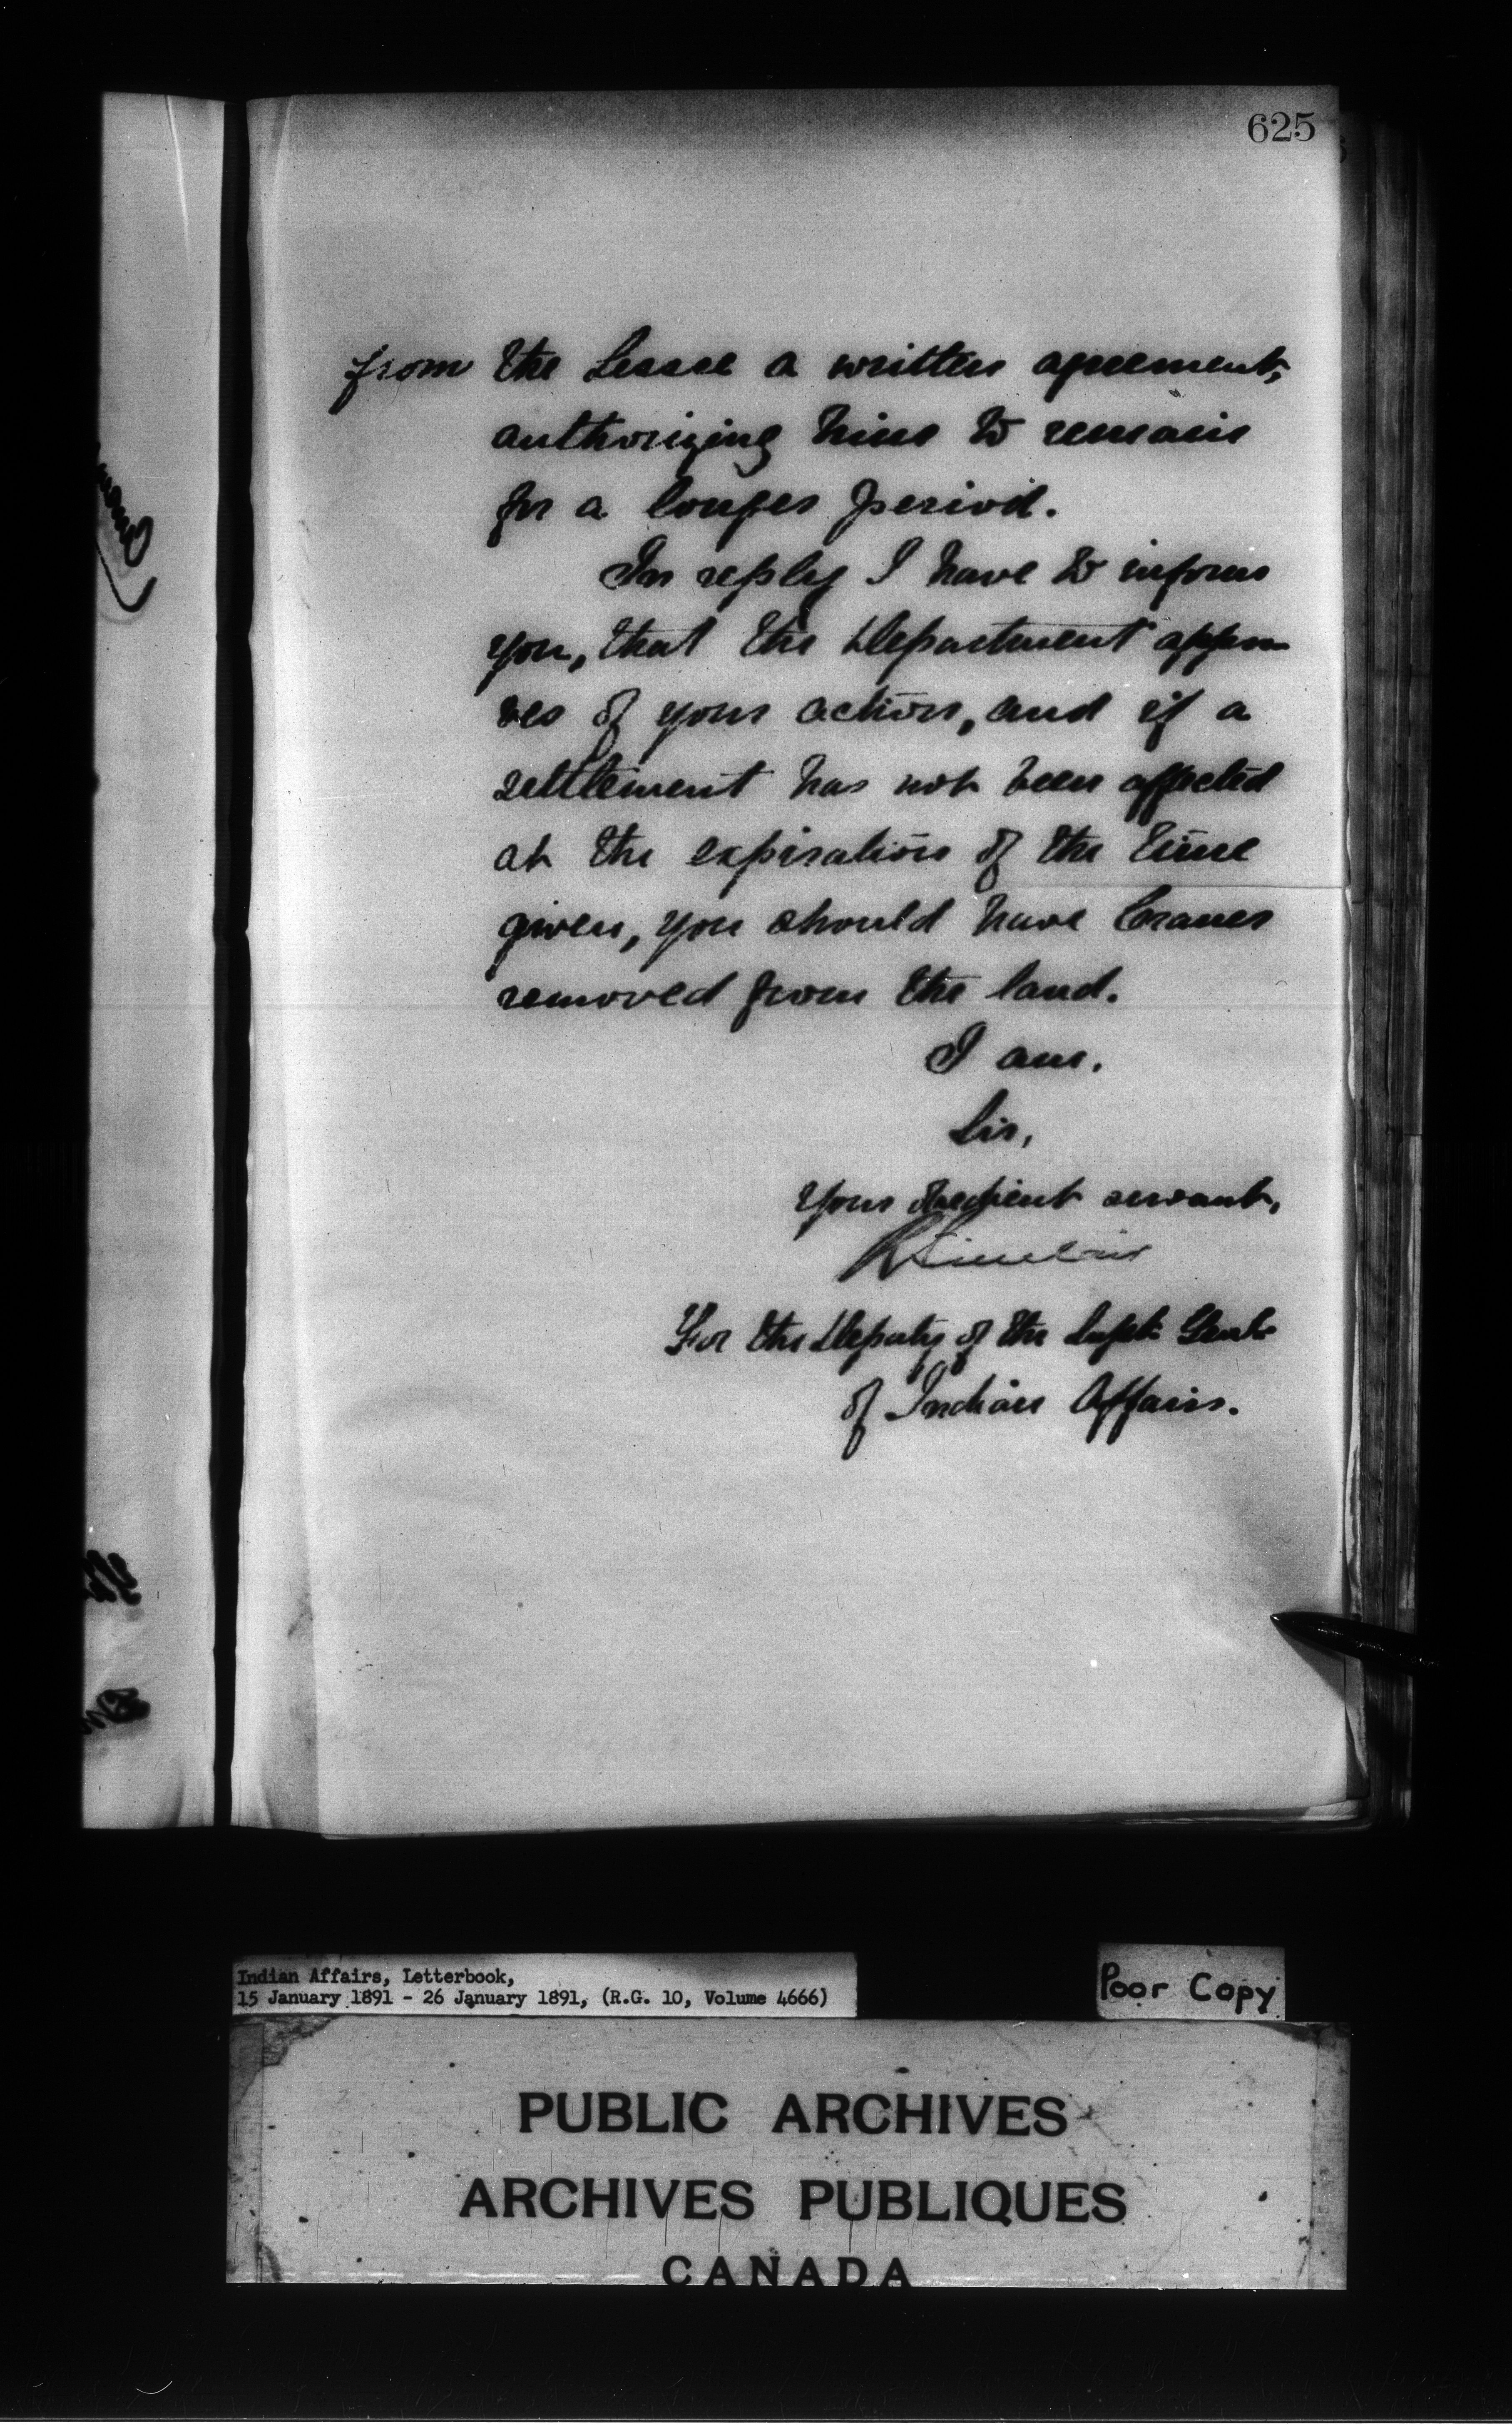 625
from the Lessee a written agreement,
authorizing him to remain
for a longer period.
In reply I have to inform
you, that the Department appro
ves of your action, and if a
settlement has not been affected
at the expiration of the time
given, you should have Craner
removed from the land.
I am.
Sir,
Your obedient servant,
R Sinclair
For the Deputy of the Supt. Genl.
of Indian Affairs.
Indian Affairs, Letterbook,
15 January 1891 - 26 January 1891, (R.G. 10, Volume 4666)
Poor Copy
PUBLIC ARCHIVES
ARCHIVES PUBLIQUES
CANADA